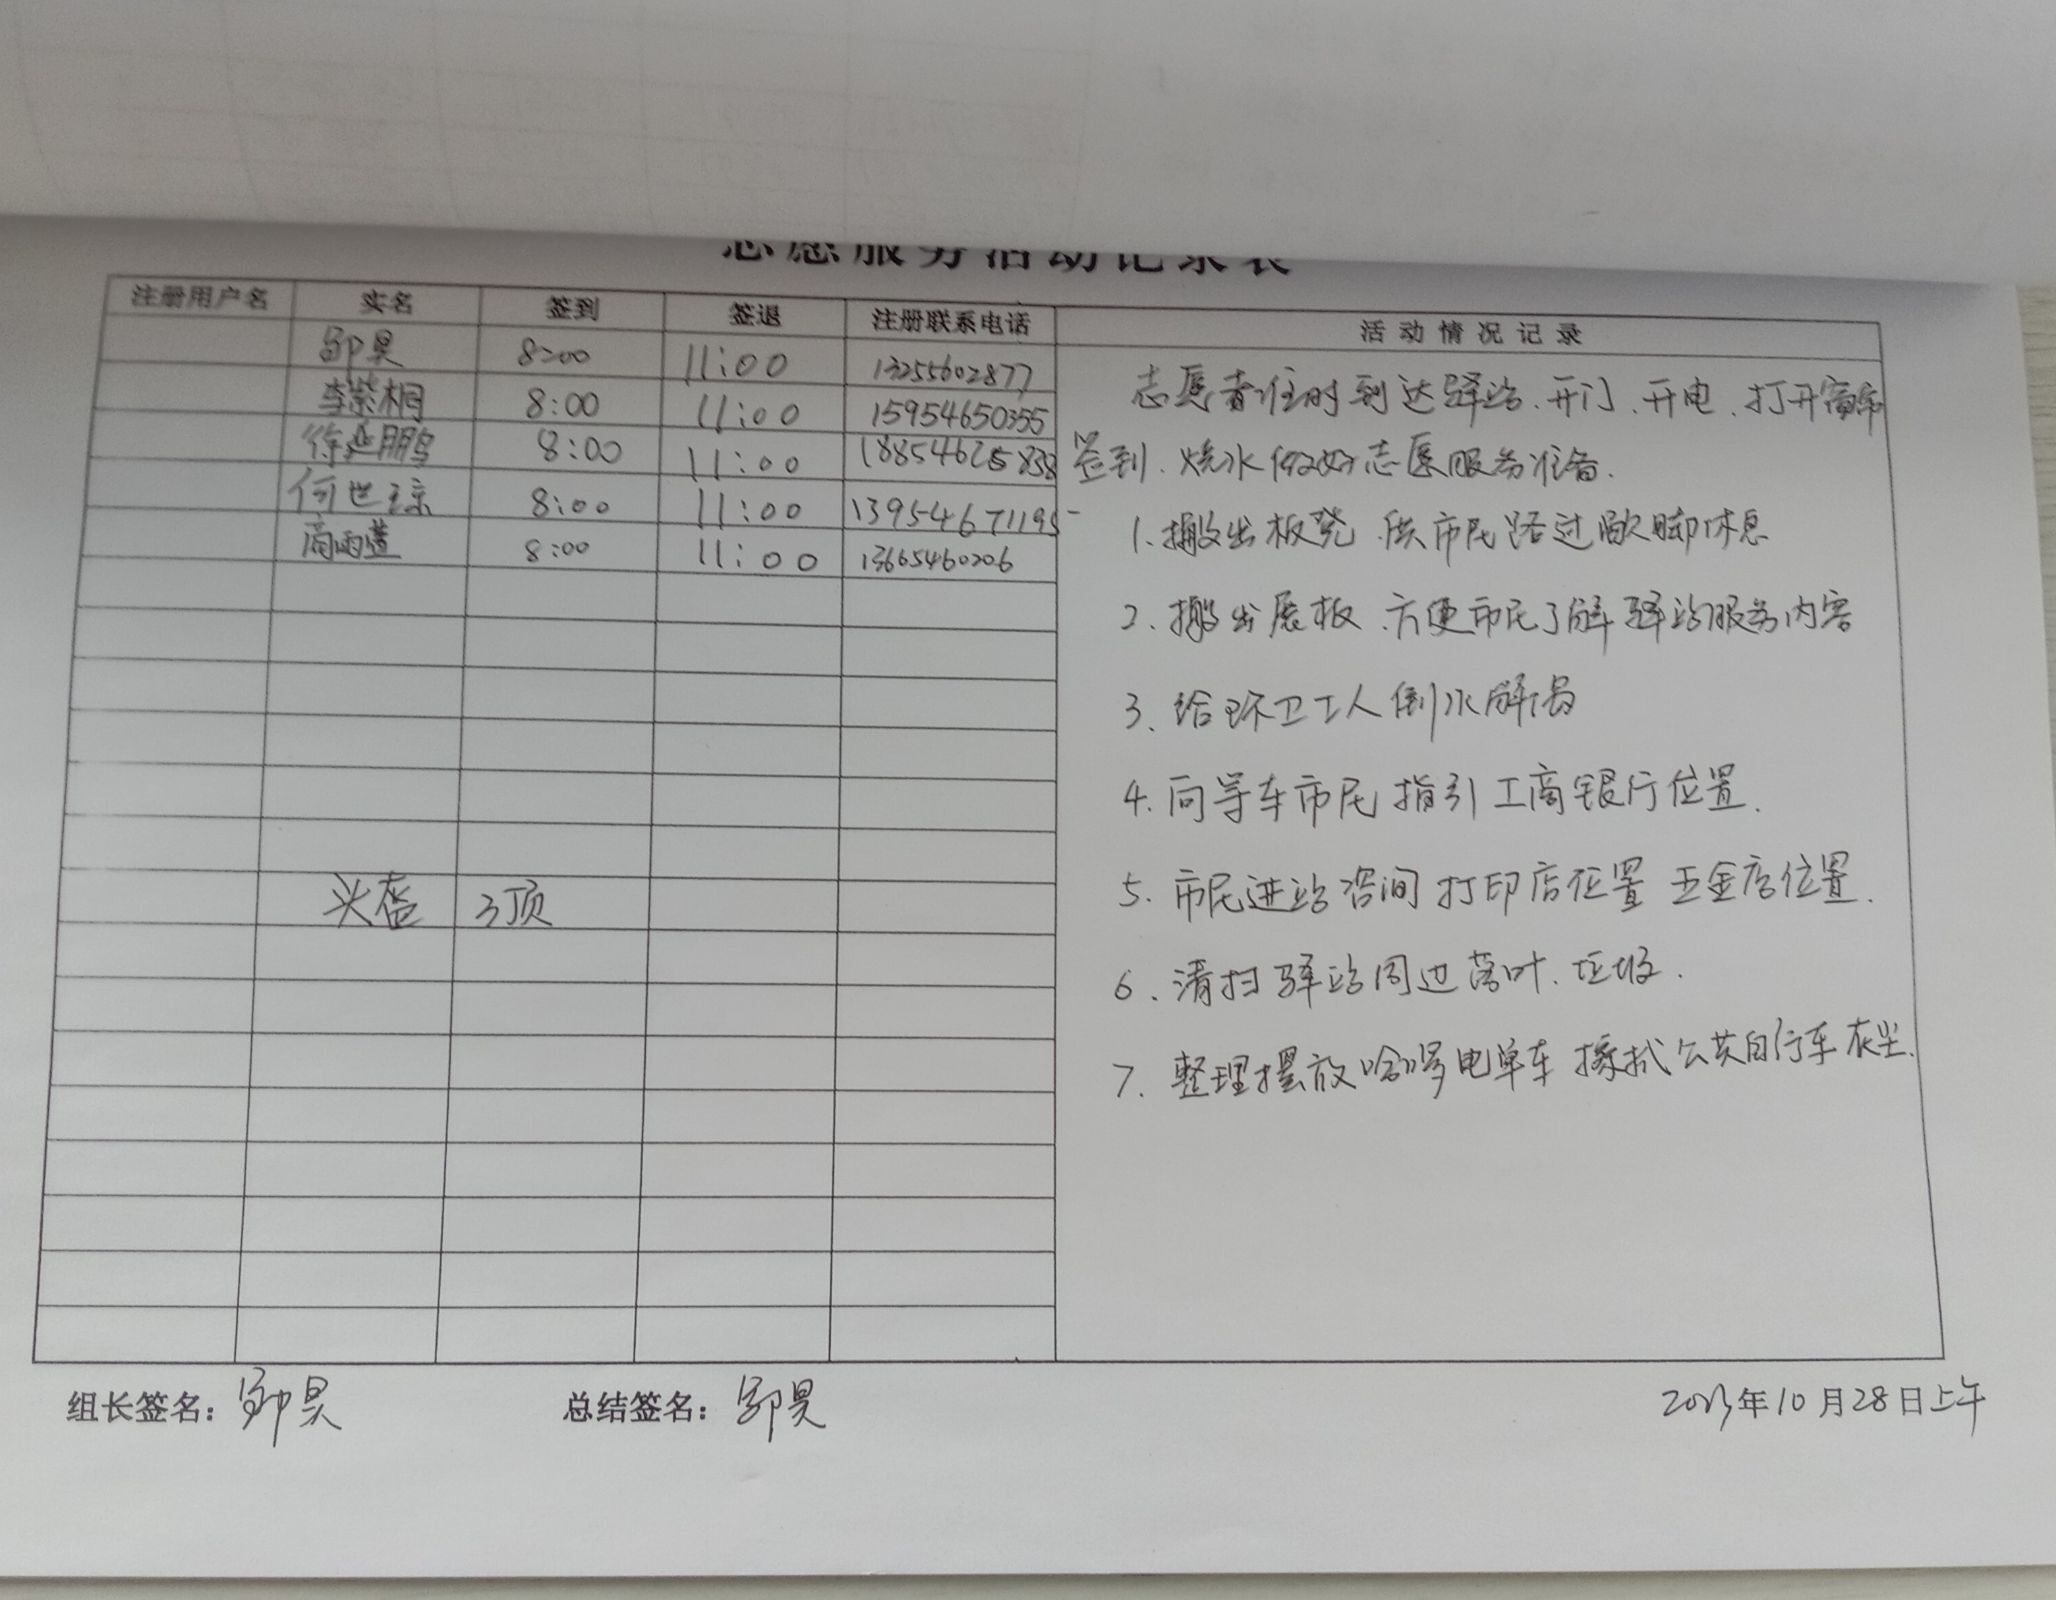 志愿服务活动记录表
注册用户名 实名 签到 签退 注册联系电话 活动情况记录
8:00 11:00 13255602877
李紫桐 8:00 11:00 15954650355
徐延鹏 8:00 11:00
何世琼 8:00 11:00 13954671195
8:00 11:00 13665460206
头盔 3顶
志愿者准时到达驿站、开门、开电、打开窗帘
签到、烧水做好志愿服务准备.
1、搬出板凳、供市民路过歇脚休息
2、搬出展板、方便市民了解驿站服务内容
3、给环卫工人倒水解渴
4、向等车市民指引工商银行位置.
5、市民进站咨询打印店位置 五金店位置.
6、清扫驿站周边落叶、垃圾.
7、整理摆放哈啰电单车 擦拭公共自行车灰尘.
组长签名: 总结签名: 2023年10月28日上午